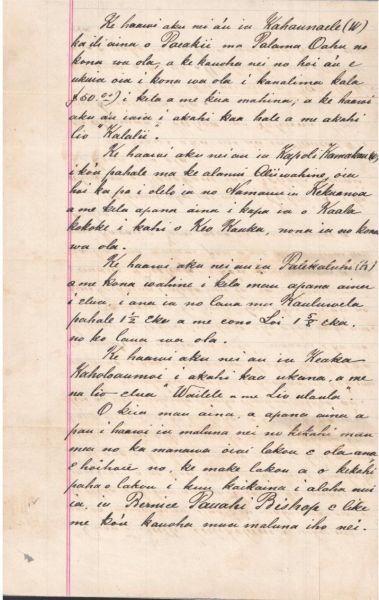 Ke haawi aku nei au ia Kahaunaele (w)
ka ili aina o Pacakii ma Palama Oahu no
kona wa ola, a ke kauoha nei no hoi au e
ukuia oia i kona wa ola i kanalima kala
$50.00 i kela a me keia mahina, a ke haawi
aku au iaia i akahi kaa hale a me akahi
lio "Kalalii".
Ke haawi aku nei au ia Kapoli Kamakau (w)
i ko'u pahale ma ke alanui Aliiwahine, oia
hoi ka pa i oleloia no Namauu ia Kekuanoa
a me kela apana aina i kapa ia o Kaala
kokoke i kahi o Keo Kauka, nona ia no kona
wa ola.
Ke haawi aku nei au ia Palekaluhi (k)
a me kona wahine i kela mau apana aina
i elua, i ana ia no laua ma Kauluwela
pahale 1 1/2 Eka a me eono Loi 1 5/8 Eka.
no ko laua wa ola.
Ke haawi aku nei au ia Keaka
Kaholoaumoi i akahi kaa ukana, a me
na lio elua "Wailele a me Lio ulaula".
O keia mau aina, a apana aina a
pau i haawi ia maluna nei no kekahi mau
mea no ka manawa oiai lakou e ola ana
E hoihoiia no, ke make lakou a o kekahi
paha o lakou i kuu kaikaina i aloha nui
ia, ia Bernice Pauahi Bishop e like
me ko'u kauoha mua maluna iho nei.